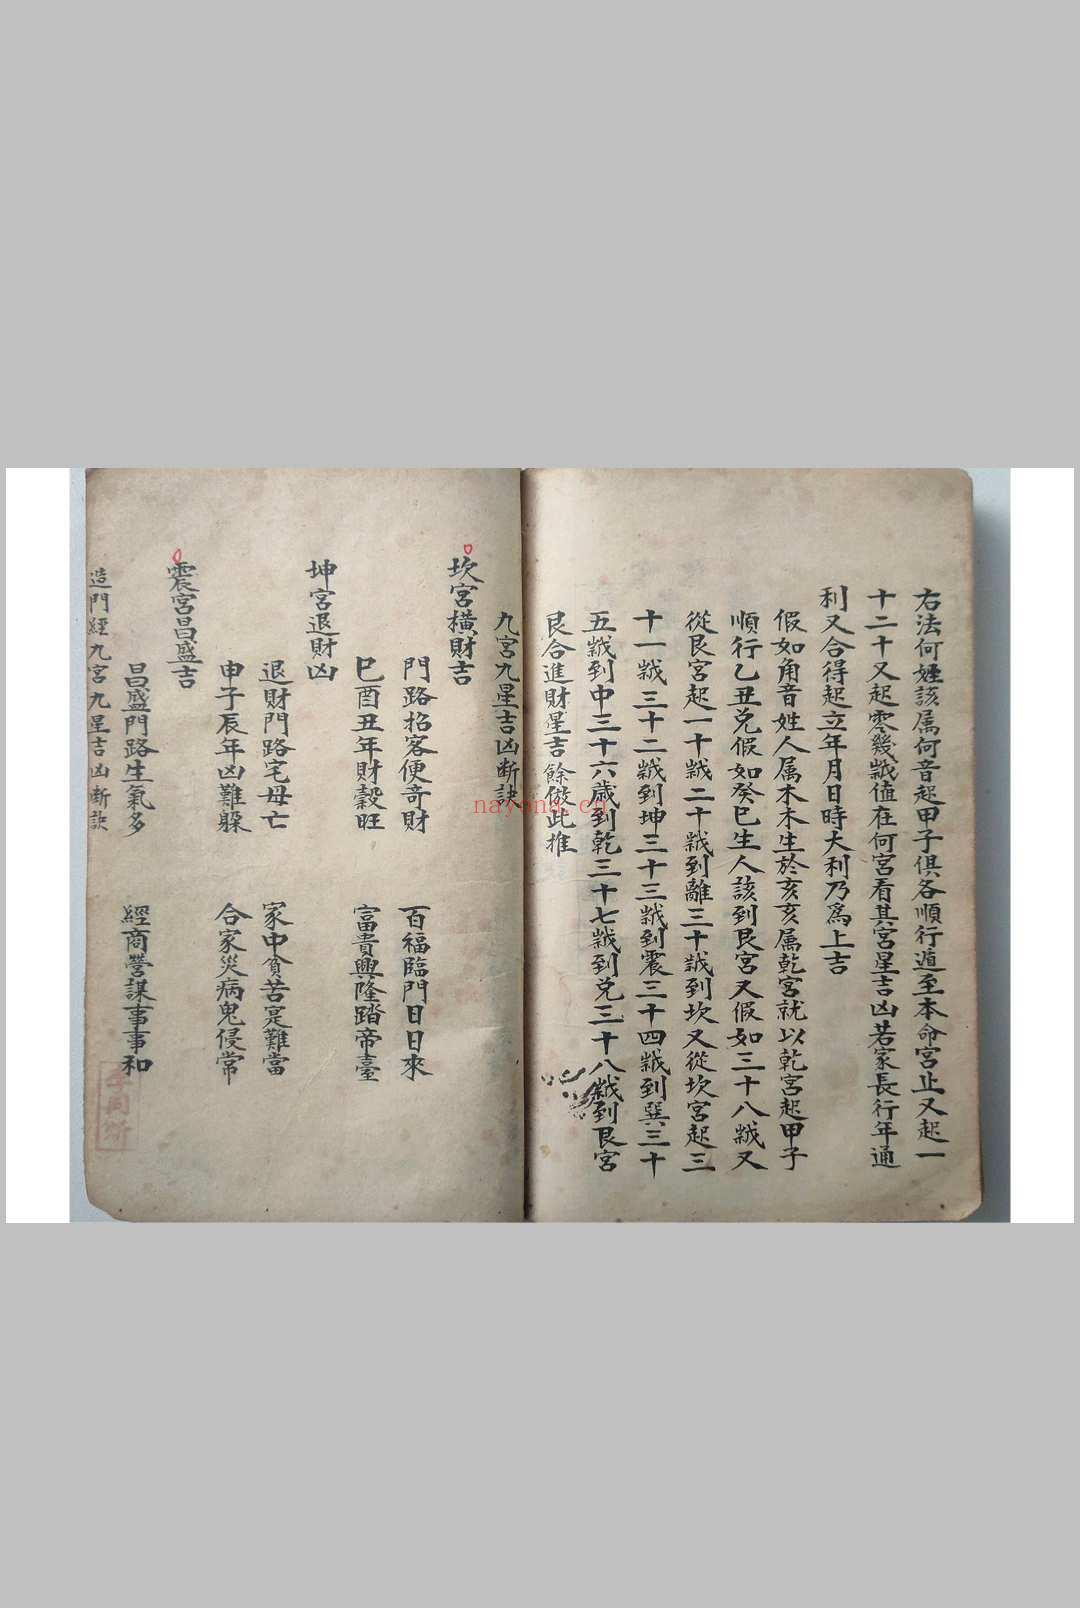 右法何姓該属何音起甲子俱各順行遁至本命宮止又起一
十二十又起零幾歲值在何宮看其宮星吉凶若家長行年通
利又合得起立年月日時大利乃為上吉
假如角音姓人属木木生於亥亥属乾宮就以乾宮起甲子
順行乙丑兌假如癸巳生人該到艮宮又假如三十八歲又
從艮宮起一十歲二十歲到離三十歲到坎又從坎宮起三
十一歲三十二歲到坤三十三歲到震三十四歲到巽三十
五歲到中三十六歲到乾三十七歲到兌三十八歲到艮宮
艮合進財星吉餘倣此推
九宮九星吉凶断訣
坎宮橫財吉
門路招客便奇財 百福臨門日日來
巳酉丑年財穀旺 富貴興隆踏帝臺
坤宮退財凶
退財門路宅母亡 家中貧苦寔難當
申子辰年凶難躲 合家災病鬼侵常
震宮昌盛吉
昌盛門路生氣多 經商營謀事事和
造門經九宮九星吉凶断訣
nayona.cn